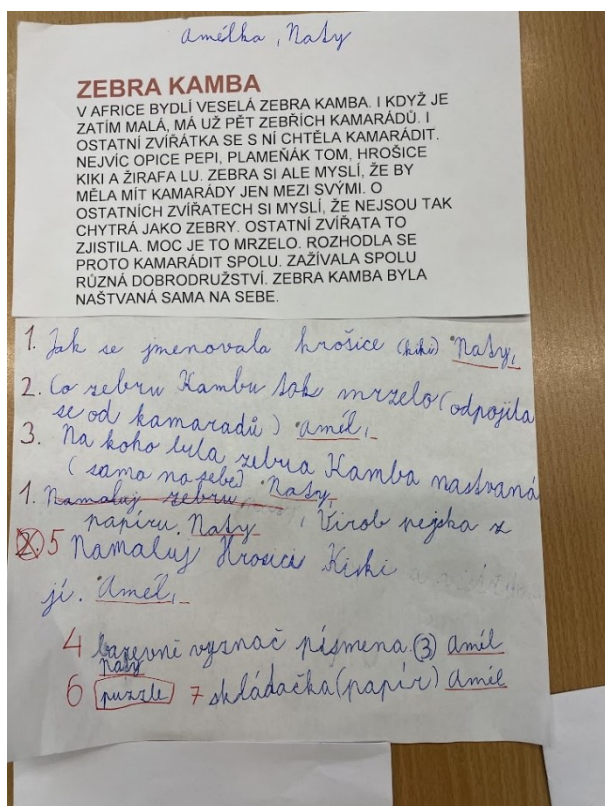 Amélka, Naty
ZEBRA KAMBA
V AFRICE BYDLÍ VESELÁ ZEBRA KAMBA. I KDYŽ JE
ZATÍM MALÁ, MÁ UŽ PĚT ZEBŘÍCH KAMARÁDŮ. I
OSTATNÍ ZVÍŘÁTKA SE S NÍ CHTĚLA KAMARÁDIT.
NEJVÍC OPICE PEPI, PLAMEŇÁK TOM, HROŠICE
KIKI A ŽIRAFA LU. ZEBRA SI ALE MYSLÍ, ŽE BY
MĚLA MÍT KAMARÁDY JEN MEZI SVÝMI. O
OSTATNÍCH ZVÍŘATECH SI MYSLÍ, ŽE NEJSOU TAK
CHYTRÁ JAKO ZEBRY. OSTATNÍ ZVÍŘATA TO
ZJISTILA. MOC JE TO MRZELO. ROZHODLA SE
PROTO KAMARÁDIT SPOLU. ZAŽÍVALA SPOLU
RŮZNÁ DOBRODRUŽSTVÍ. ZEBRA KAMBA BYLA
NAŠTVANÁ SAMA NA SEBE.
1. Jak se jmenovala hrošice (kiki) Naty,
2. Co zebru Kambu tak mrzelo (odpojila
se od kamaradů) amél,
3. Na koho byla zebra Kamba nastvaná
(sama na sebe) Naty,
1. Namaluj zebru
papíru. Naty, Virob pejska z
2. 5 Namaluj Hrosici Kiki
jí. Amél,
4 barevně vyznač písmena. (3) Amél
Naty
6 puzzle 7 skládačka (papír) Amél